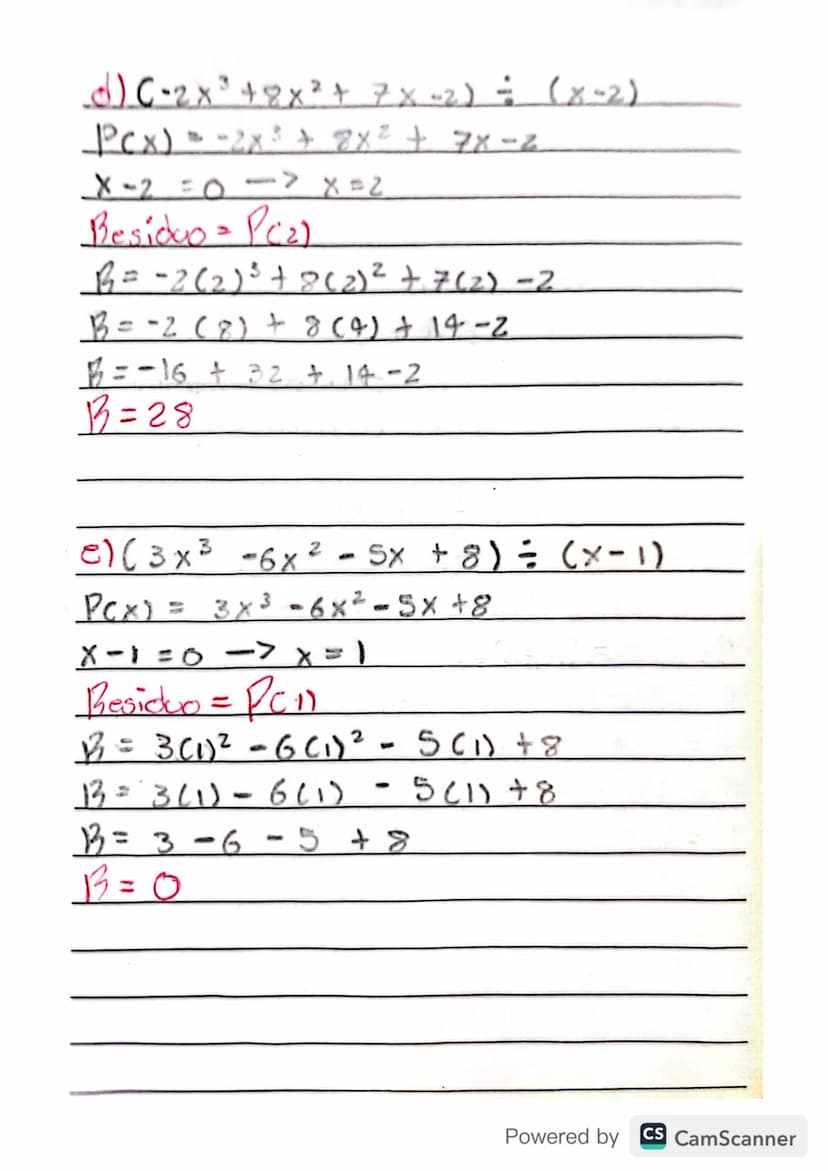 d) (-2x³ +8x² + 7x -2) ÷ (x-2)
P(x) = -2x³ + 8x² + 7x - 2
x - 2 = 0 -> x = 2
Residuo = P(2)
R = -2(2)³ + 8(2)² + 7(2) - 2
R = -2 (8) + 8(4) + 14 - 2
R = -16 + 32 + 14 - 2
R = 28
e) (3x³ -6x² - 5x + 8) ÷ (x-1)
P(x) = 3x³ - 6x² - 5x +8
x - 1 = 0 -> x = 1
Residuo = P(1)
R = 3(1)² - 6(1)² - 5(1) + 8
R = 3(1) - 6(1) - 5(1) + 8
R = 3 - 6 - 5 + 8
R = 0
Powered by CS CamScanner